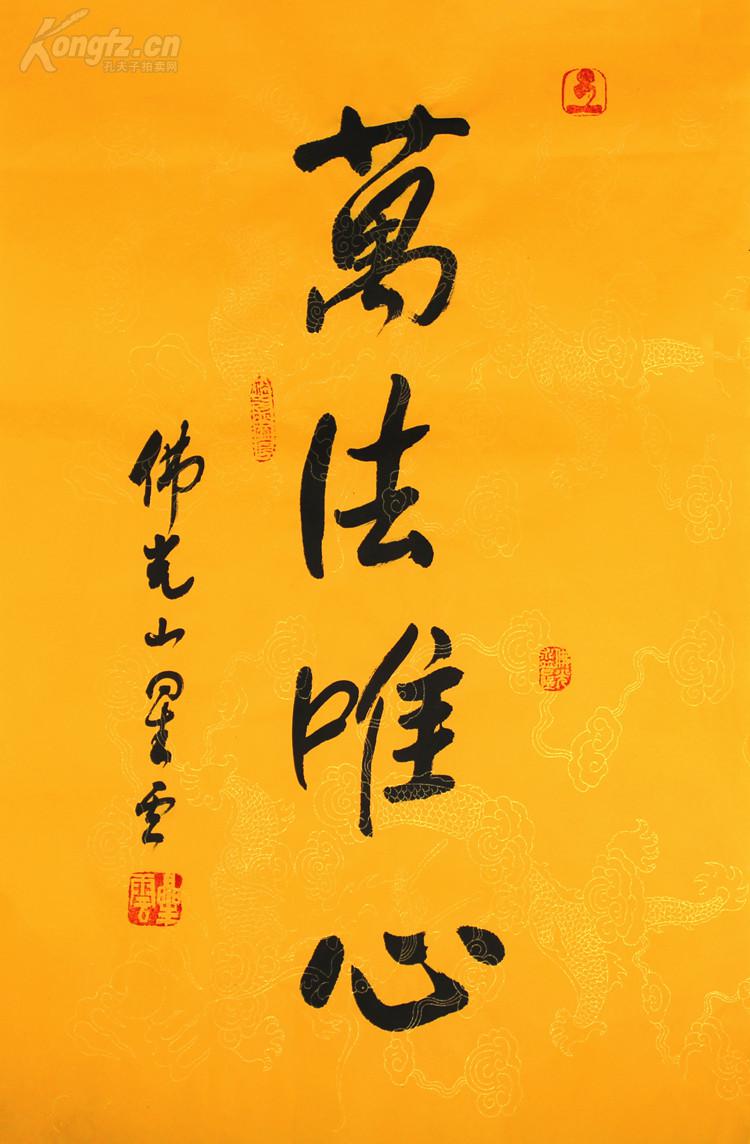 Kongfz.cn
孔夫子拍卖网
萬法唯心
佛光山星雲
星雲